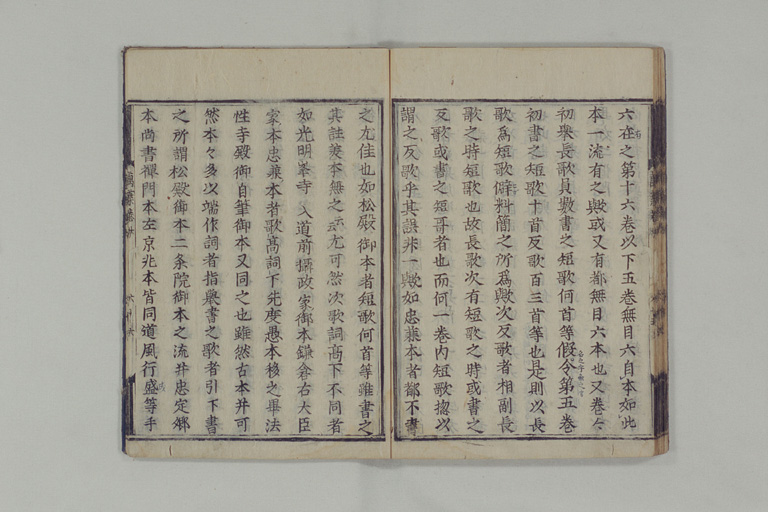 六在之第十六卷以下五卷無目六自本如此
本一流有之歟或又有都無目六本也又卷々
初舉長歌員數書之短歌何首等假令第五卷
初書之短歌十首反歌百三首等也是則以長
歌爲短歌僻料簡之所爲歟次反歌者相副長
歌之時短歌也故長歌次有短歌之時或書之
反歌或書之短哥者也而何一卷內短歌揔以
謂之反歌乎其誤非一歟如忠兼本者都不書
之尤佳也如松殿御本者短歌何首等雖書之
其註義本無之云尤可然次歌詞高下不同者
如光明峯寺入道前攝政家御本鎌倉右大臣
家本忠兼本者歌高詞下先度愚本移之畢法
性寺殿御自筆御本又同之也雖然古本并可
然本々多以端作詞者指舉書之歌者引下書
之所謂松殿御本二条院御本之流并忠定卿
本尚書禪門本左京兆本皆同道風行盛等手